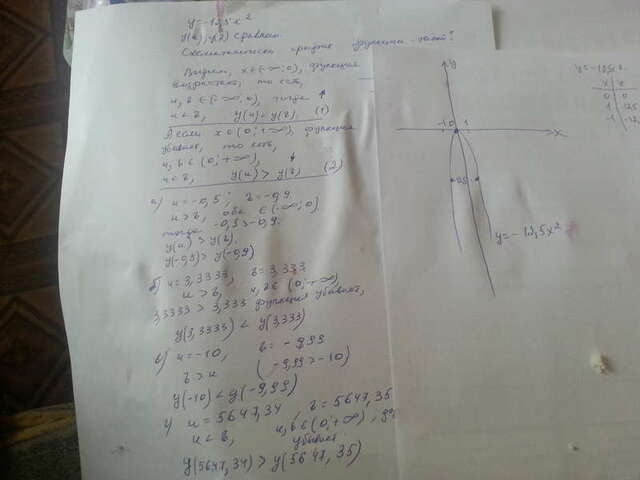 y=-12,5x²
y(u), y(в) сравним.
Схематически график функции такой?
Видим, x∈(-∞;0), функция
возрастает, то есть,
u, в ∈ (-∞;0), тогда
u<в, y(u)<y(в) (1)
А если x∈(0;+∞), функция
убывает, то есть,
u, в ∈ (0;+∞),
u<в, y(u)>y(в) (2)
а) u=-0,5; в=-0,9
u>в, оба ∈(-∞;0]
тогда -0,5>-0,9.
y(u)>y(в).
y(-0,5)>y(-0,9)
б) u=3,3333, в=3,333
u>в, u, в∈(0;+∞),
3,3333>3,333 функция убывает,
y(3,3333)<y(3,333)
в) u=-10, в=-9,99
в>u (-9,99>-10)
y(-10)<y(-9,99)
г) u=5647,34, в=5647,35
u<в, u, в∈(0;+∞),
убывает
y(5647,34)>y(5647,35)
y
-1 0 1
x
y=-12,5x²
y=-12,5x²
x y
0 0
1
-1